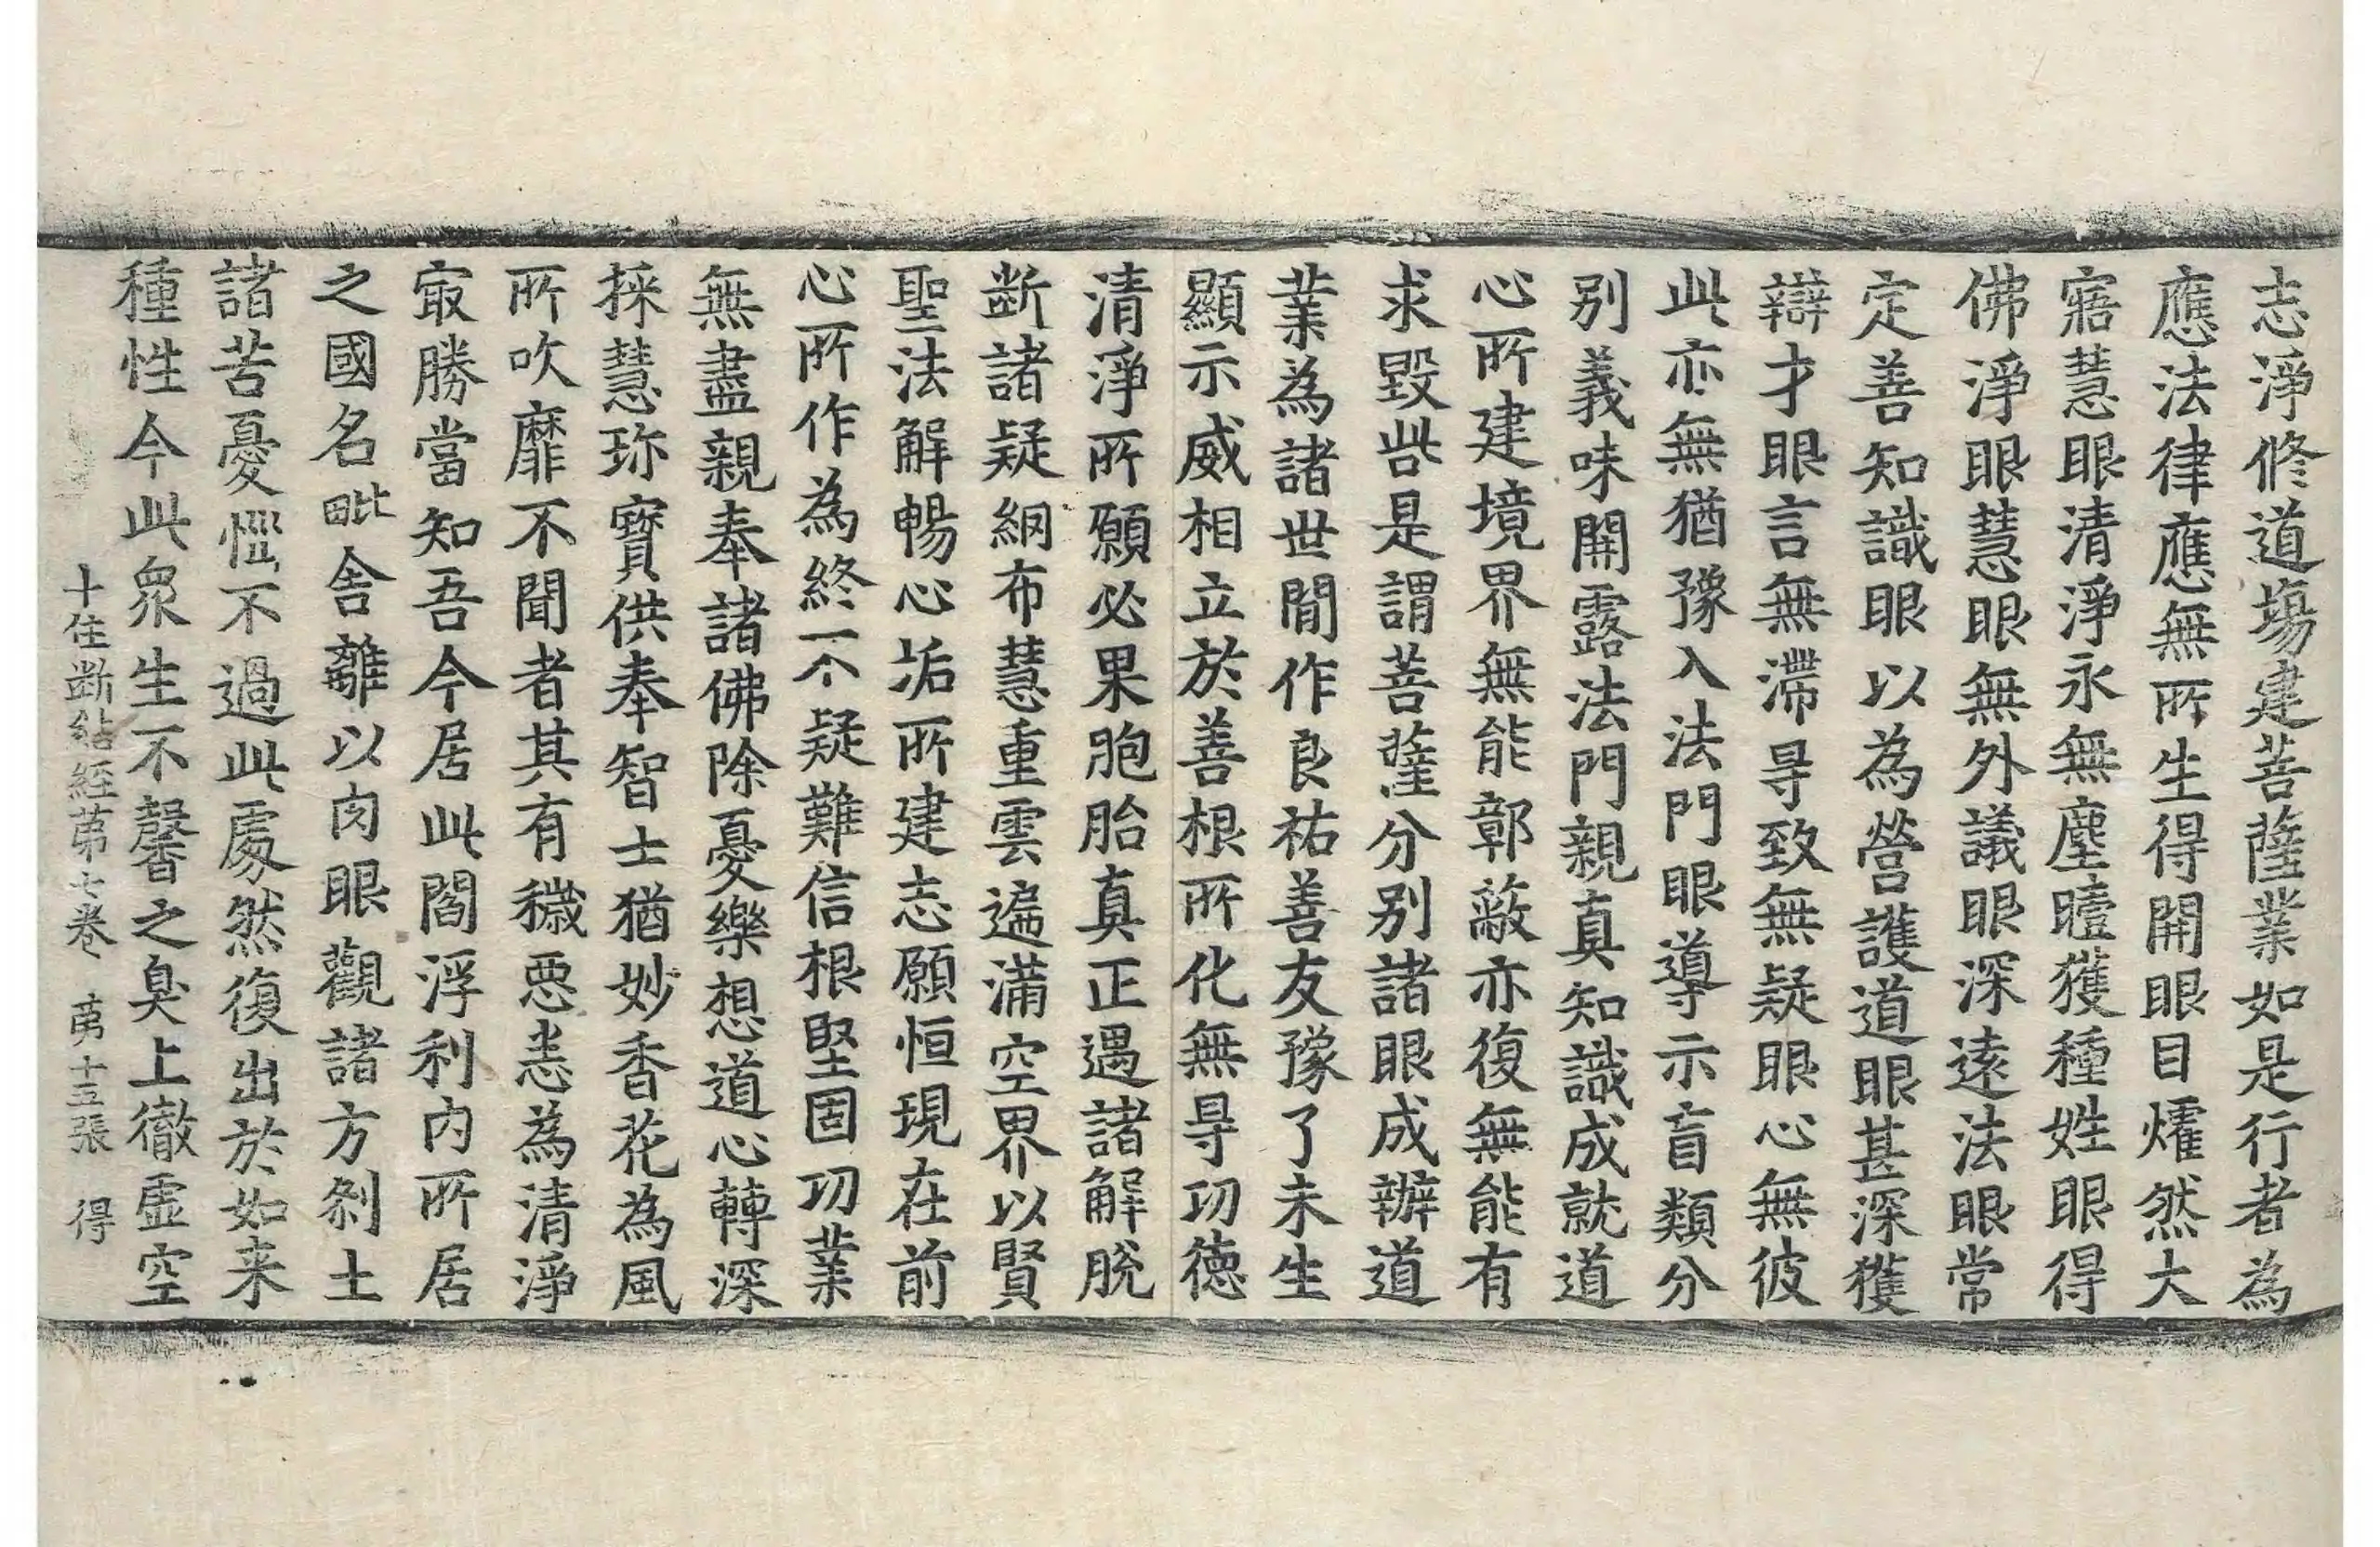 志淨修道場建菩薩業如是行者為
應法律應無所生得開眼目燿然大
寤慧眼清淨永無塵曀獲種姓眼得
佛淨眼慧眼無外議眼深遠法眼常
定善知識眼以為營護道眼甚深獲
辯才眼言無滯㝵致無疑眼心無彼
此亦無猶豫入法門眼導示盲類分
別義味開露法門親真知識成就道
心所建境界無能鄣蔽亦復無能有
求毀呰是謂菩薩分別諸眼成辦道
業為諸世間作良祐善友豫了未生
顯示威相立於善根所化無㝵功德
清淨所願必果胞胎真正遇諸解脫
斷諸疑網布慧重雲遍滿空界以賢
聖法解暢心垢所建志願恒現在前
心所作為終不疑難信根堅固功業
無盡親奉諸佛除憂樂想道心轉深
採慧珎寶供奉智士猶妙香花為風
所吹靡不聞者其有穢惡恚為清淨
㝡勝當知吾今居此閻浮利內所居
之國名毗舍離以肉眼觀諸方剎土
諸苦憂惱不過此處然復出於如来
種性今此眾生不馨之臭上徹虛空
十住斷結經苐七卷 苐十五張 得